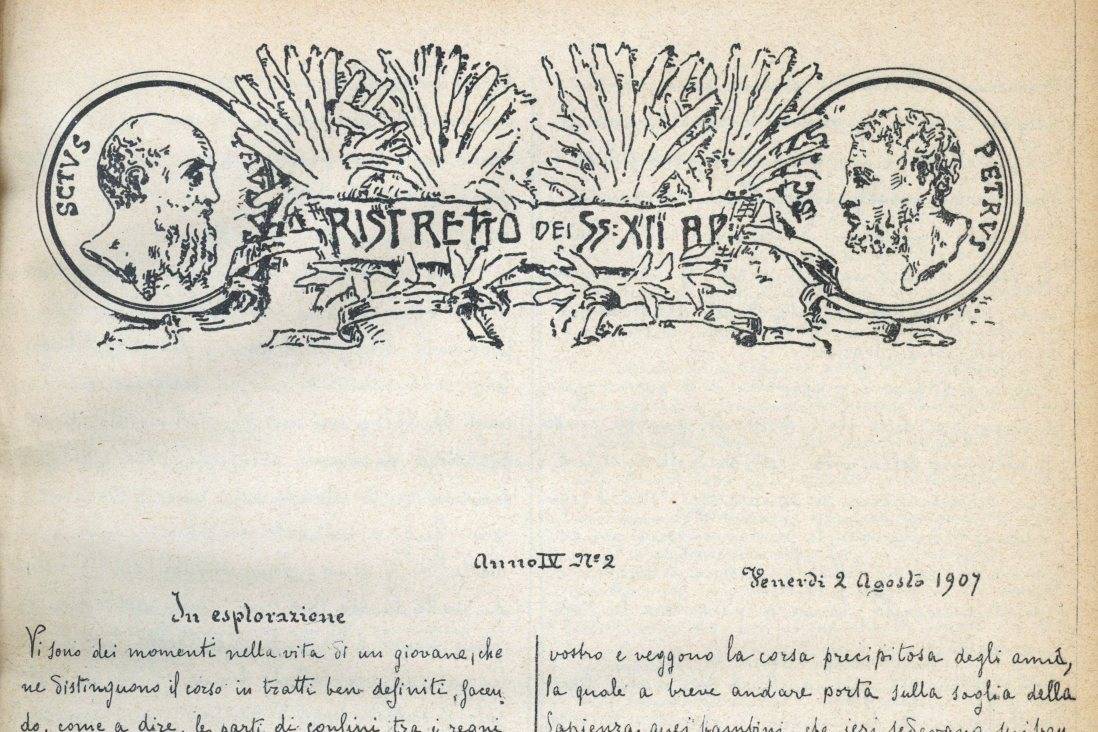 SCTVS
RISTRETTO DEI SS: XII AP.
PETRVS
Anno IV Nº 2
Venerdi 2 Agosto 1907
In esplorazione
Vi sono dei momenti nella vita di un giovane, che
ne distinguono il corso in tratti bene definiti, facen
do, come a dire, le parti di confini tra i regni
vostro e veggono la corsa precipitosa degli anni,
la quale a breve andare porta sulla soglia della
Sapienza quei bambini, che ieri sedevano